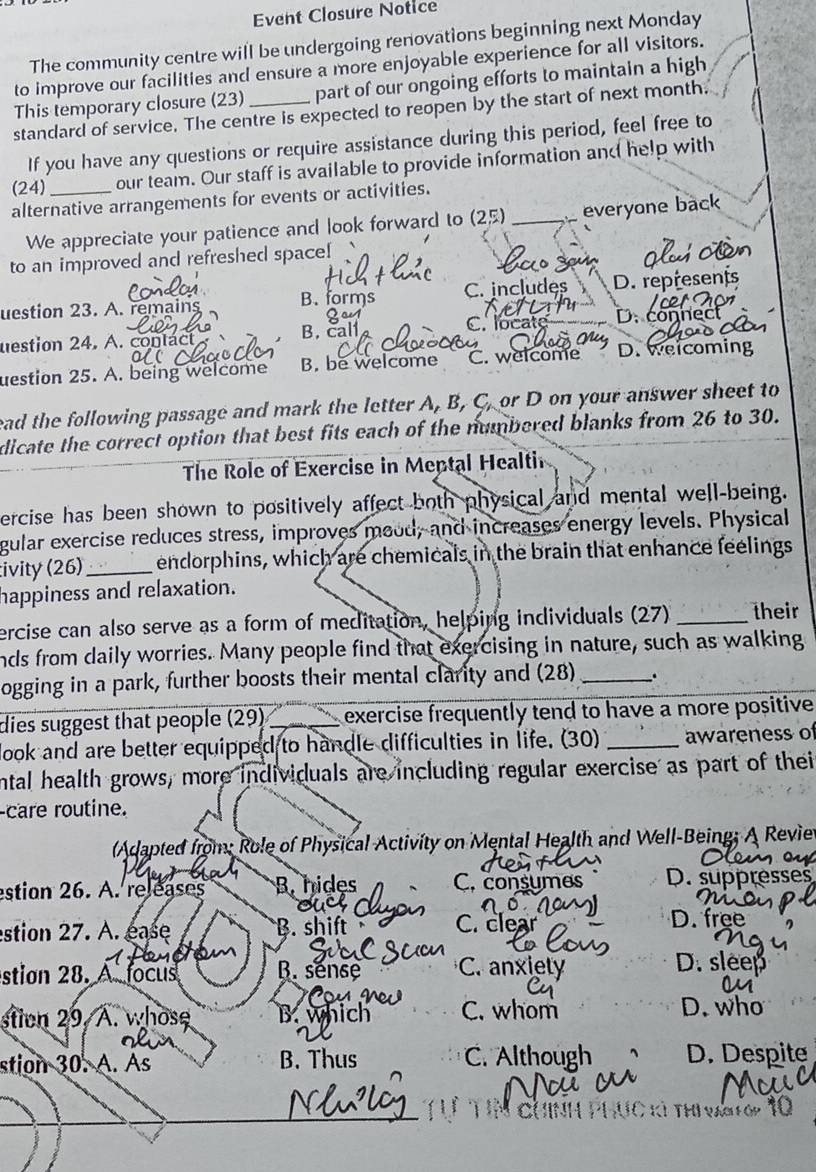 Event Closure Notice
The community centre will be undergoing renovations beginning next Monday
to improve our facilities and ensure a more enjoyable experience for all visitors.
This temporary closure (23) ______ part of our ongoing efforts to maintain a high
standard of service. The centre is expected to reopen by the start of next month.
If you have any questions or require assistance during this period, feel free to
(24) ______ our team. Our staff is available to provide information and help with
alternative arrangements for events or activities.
We appreciate your patience and look forward to (25) ______ everyone back
to an improved and refreshed space!
uestion 23. A. remains B. forms C. includes D. represents
uestion 24. A. contact B. call C. locate D. connect
uestion 25. A. being welcome B. be welcome C. welcome D. welcoming
ead the following passage and mark the letter A, B, C, or D on your answer sheet to
dicate the correct option that best fits each of the numbered blanks from 26 to 30.
The Role of Exercise in Mental Health
ercise has been shown to positively affect both physical and mental well-being.
gular exercise reduces stress, improves mood, and increases energy levels. Physical
tivity (26) ______ endorphins, which are chemicals in the brain that enhance feelings
happiness and relaxation.
ercise can also serve as a form of meditation, helping individuals (27) ______ their
nds from daily worries. Many people find that exercising in nature, such as walking
ogging in a park, further boosts their mental clarity and (28) ______.
dies suggest that people (29) ______ exercise frequently tend to have a more positive
look and are better equipped to handle difficulties in life. (30) ______ awareness of
ntal health grows, more individuals are including regular exercise as part of thei
-care routine.
(Adapted from: Role of Physical Activity on Mental Health and Well-Being: A Revie
estion 26. A. releases B. hides C. consumes D. suppresses
estion 27. A. ease B. shift C. clear D. free
stion 28. A. focus B. sense C. anxiety D. sleep
stion 29. A. whose B. which C. whom D. who
stion 30. A. As B. Thus C. Although D. Despite
TỰ TIN CHINH PHỤC KÌ THI VÀO LỚP 10